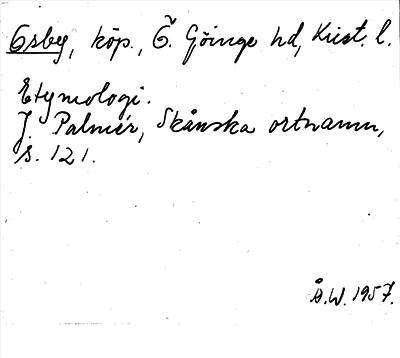 Osby, köp., Ö. Göinge hd, Krist. l.
Etymologi.
J. Palmér, Skånska ortnamn,
s. 121.
Å.W. 1957.